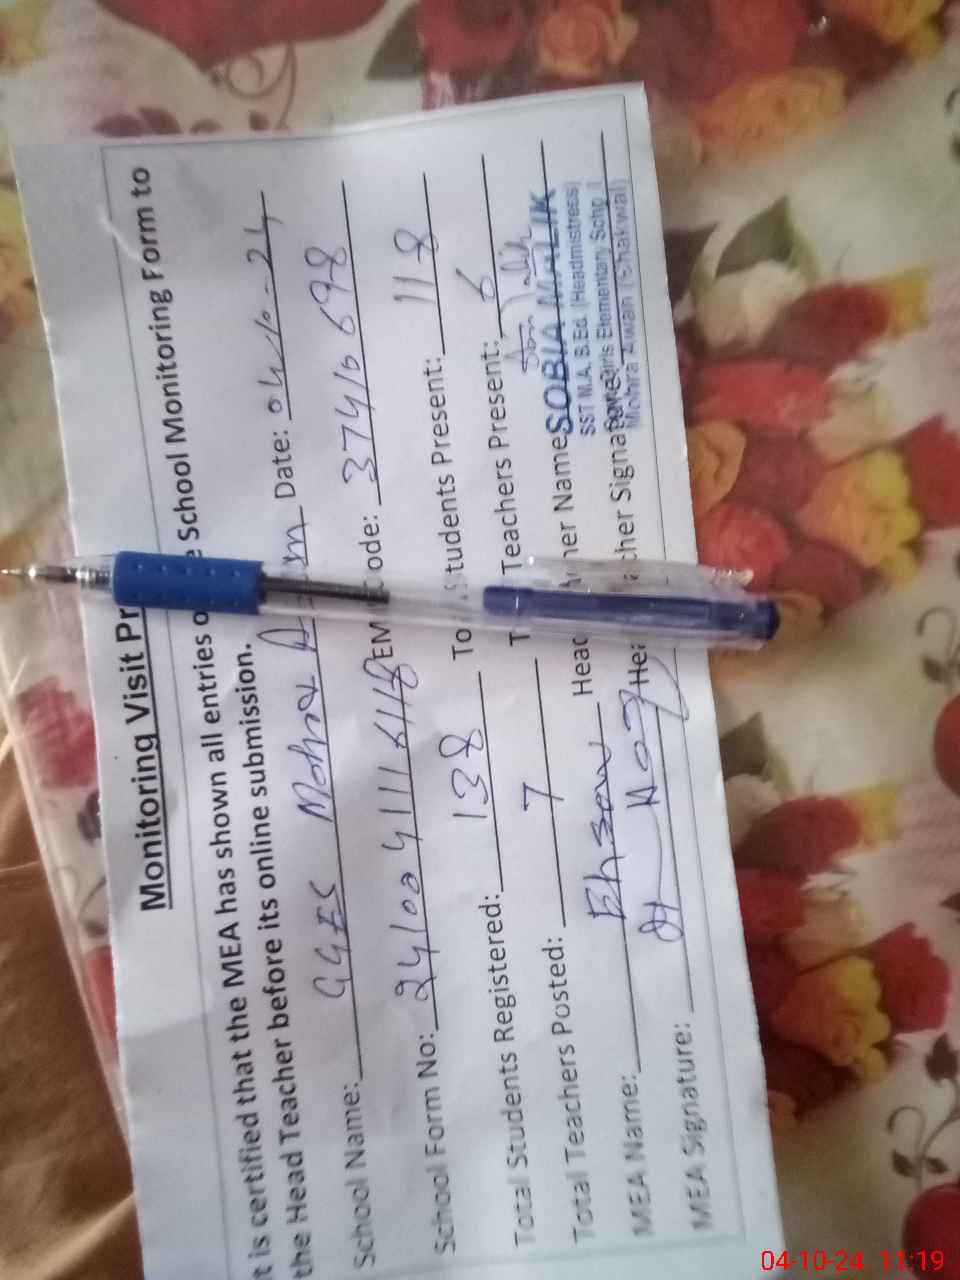 Monitoring Visit Pr
It is certified that the MEA has shown all entries o e School Monitoring Form to
the Head Teacher before its online submission.
School Name: GGES Mohra A Date: 04-10-24
School Form No: EM Code: 37410698
Total Students Registered: 138 To Students Present: 118
Total Teachers Posted: 7 T Teachers Present: 6
MEA Name: Head her Name SOBIA MALIK
SST M.A. B.Ed. (Headmistress)
MEA Signature: Hea cher Signa Girls Elementary School
Mohra Awan (Chakwal)
04-10-24 11:19